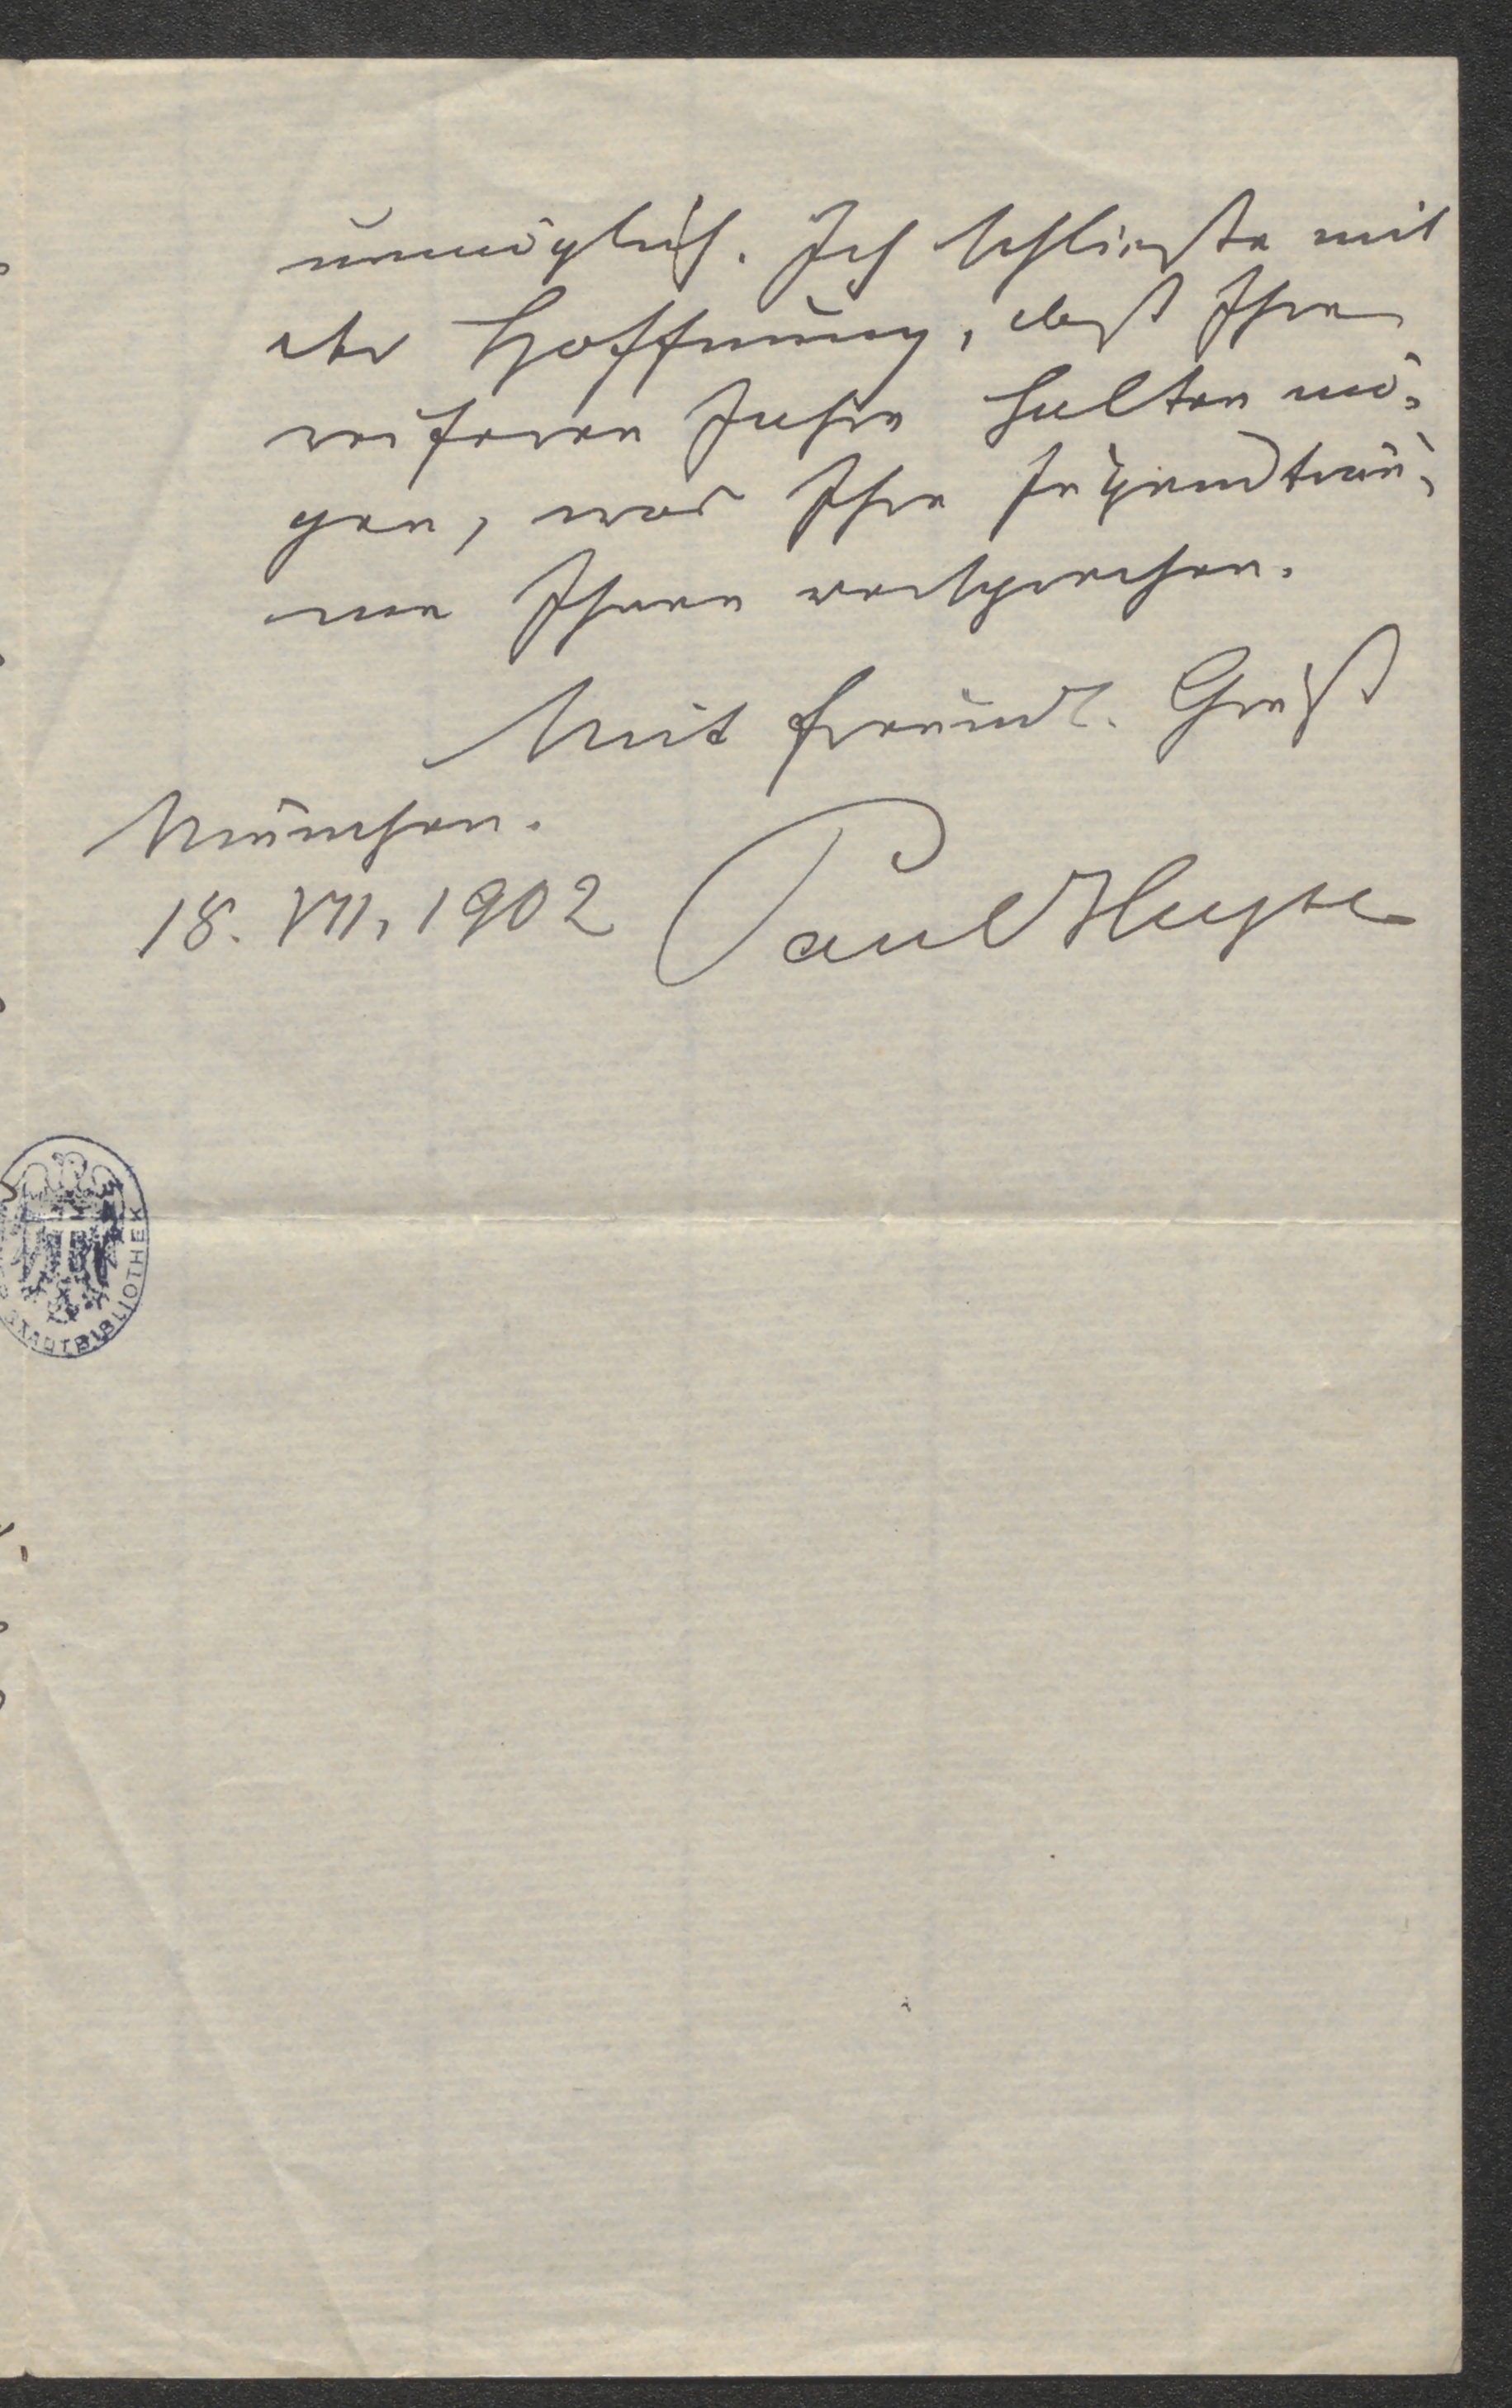 unmöglich. Ich schließe mit
der Hoffnung, daß Ihre
reiferen Jahre halten mö-
gen, was Ihre Jugendträu-
me Ihnen versprechen.
Mit freundl. Gruß
München.
18. VII. 1902 Paul Heyse
STADTBIBLIOTHEK